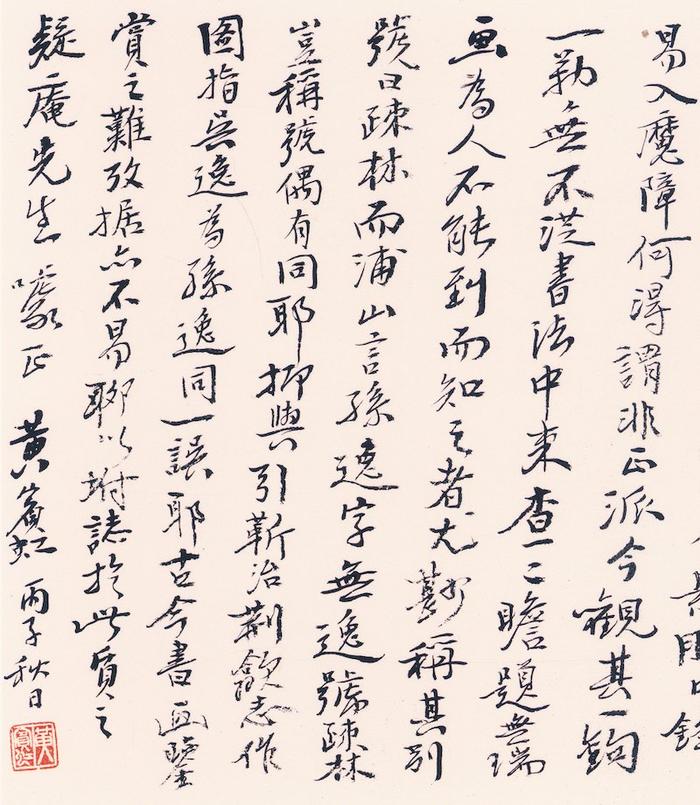 易入魔障何得謂非正派今觀其一鉤
一勒無不從書法中来查二瞻題無瑞
画為人不能到而知之者尤尠稱其別
號曰疎林而浦山言孫逸字無逸號疎林
豈稱號偶有同耶抑與引靳治荊歙志作
圖指吳逸為孫逸同一誤耶古今書画鑒
賞之難攷据亦不易聊以坿誌於此質之
疑庵先生 正 黃賓虹 丙子秋日